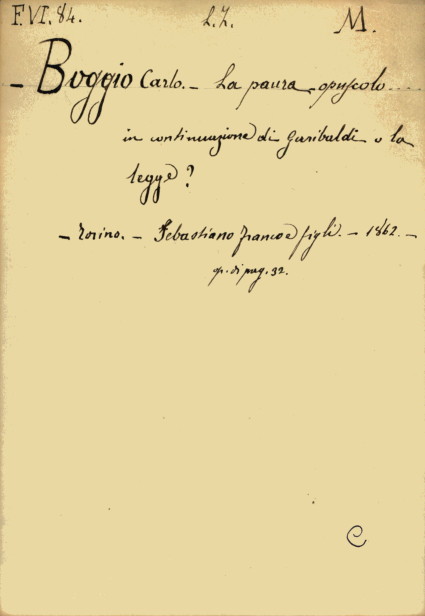 F.VI.84. L.Z. M.
– Boggio Carlo. – La paura opuscolo ....
in continuazione di Garibaldi o la
legge?
– Torino. – Sebastiano Franco e figli. – 1862. –
op. di pag. 32.
C